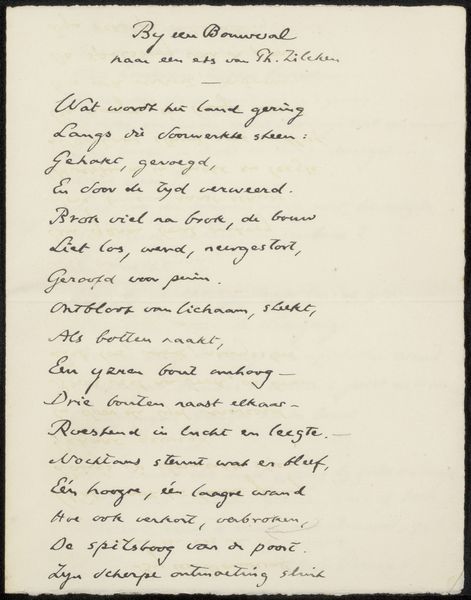 By een Bouwval
naar een ets van Ph. Zilcken
Wat wordt het land gering
Langs die doorwerkte steen:
Gehakt, gevoegd,
En door de tyd verweerd.
Brok viel na brok, de bouw
Liet los, werd, neergestort,
Geroofd voor puin.
Ontbloot van lichaam, steekt,
Als botten naakt,
Een yzeren bout omhoog –
Drie bouten naast elkaar –
Roestend in lucht en leegte. –
Nochtans steunt wat er bleef,
Eén hoogre, één laagre wand
Hoe ook verkort, verbroken,
De spitsboog van de poort.
Zyn scherpe ontmoeting